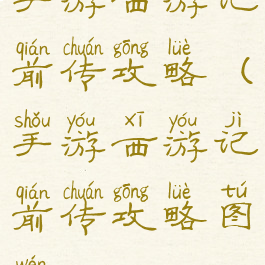 手游西游记
qián chuán gōng lüè
前传攻略(
shǒu yóu xī yóu jì
手游西游记
qián chuán gōng lüè tú
前传攻略图
wén